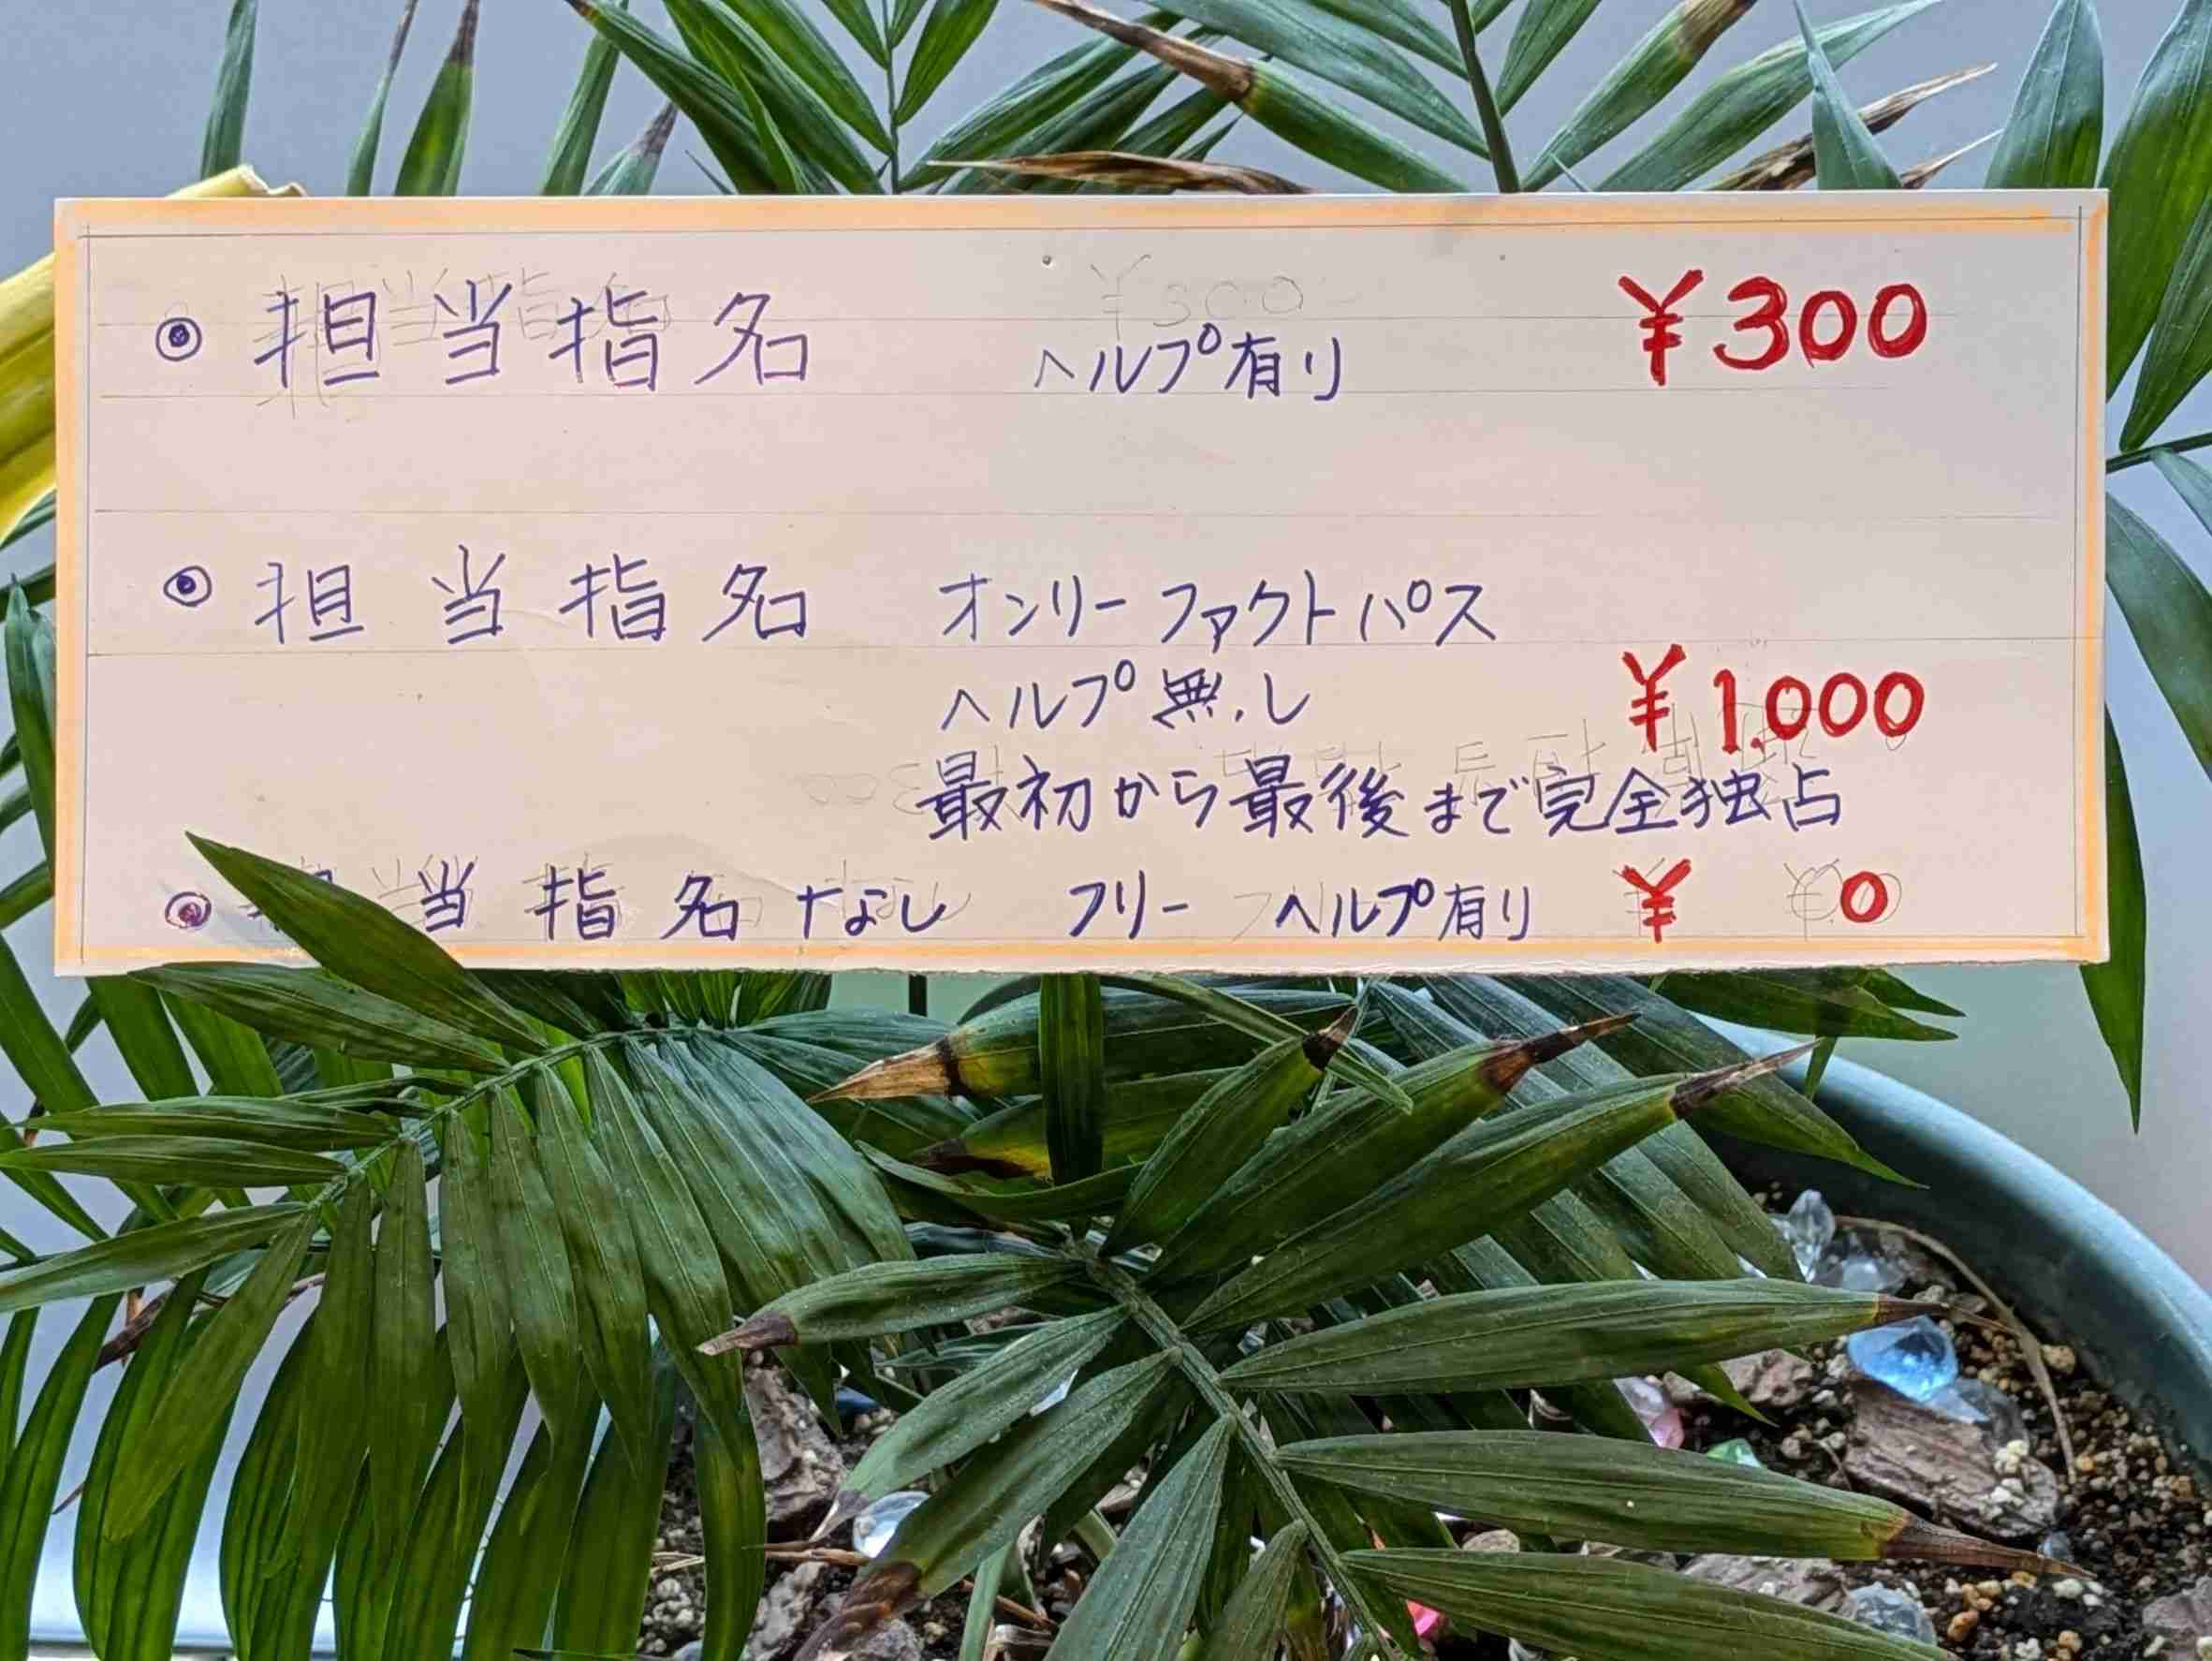 ◉ 担当指名 ヘルプ有り ¥300
◉ 担当指名 オンリーファクトパス
ヘルプ無し ¥1,000
最初から最後まで完全独占
◉ 担当指名なし フリー ヘルプ有り ¥ 0